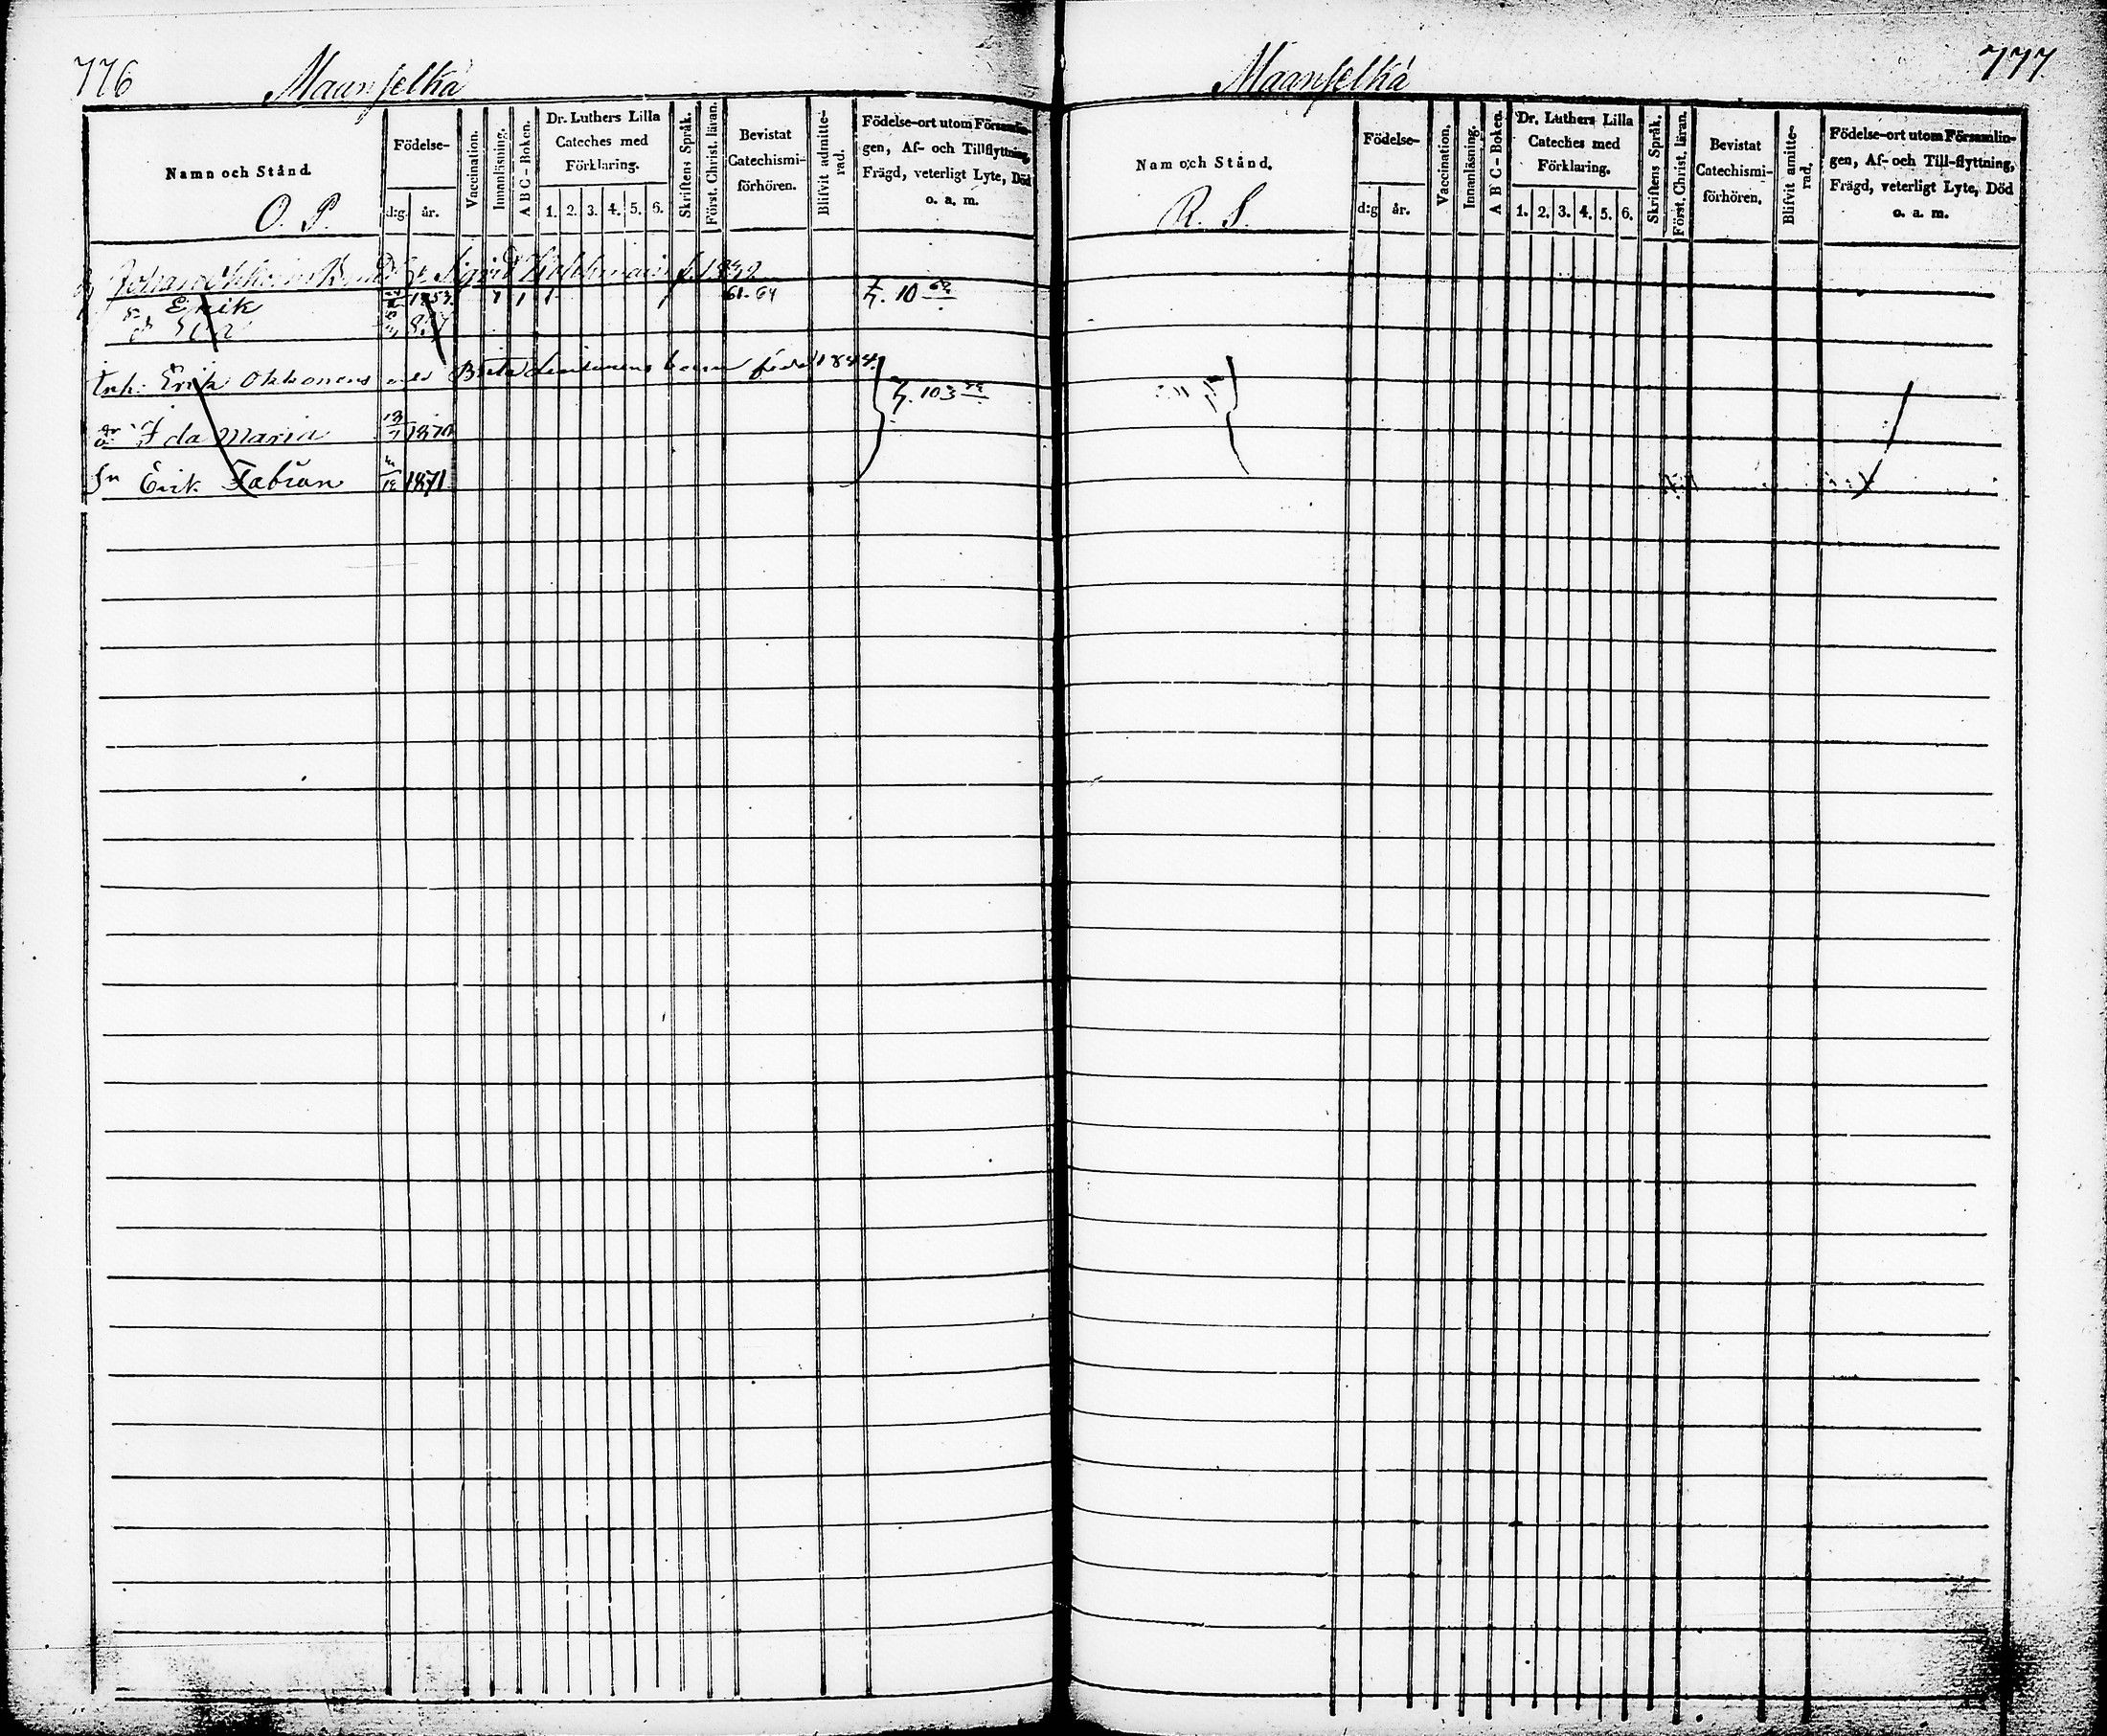 776
Maanselkä
Namn och Stånd
O. P.
Födelse-
d:g. år.
Vaccination.
Innanläsning.
A B C - Boken.
Dr. Luthers Lilla
Cateches med
Förklaring.
1. 2. 3. 4. 5. 6.
Skriftens Språk.
Först. Christ. läran.
Bevistat
Catechismi-
förhören.
Blifvit admitte-
rad.
Födelse-ort utom Församlin-
gen, Af- och Tillflyttning,
Frägd, veterligt Lyte, Död
o. a. m.
Johan Sigrid 1832
Erik 1853 61-64 10
Inh: Erik Okkonens Brita barn född 1844
103
Ida Maria 1870
Sn Erik Fabian 1871
Maanselkä
777
Namn och Stånd.
R. S.
Födelse-
d:g år.
Vaccination.
Innanläsning.
A B C - Boken.
Dr. Luthers Lilla
Cateches med
Förklaring.
1. 2. 3. 4. 5. 6.
Skriftens Språk.
Först. Christ. läran.
Bevistat
Catechismi-
förhören.
Blifvit amitte-
rad.
Födelse-ort utom Församlin-
gen, Af- och Till-flyttning,
Frägd, veterligt Lyte, Död
o. a. m.